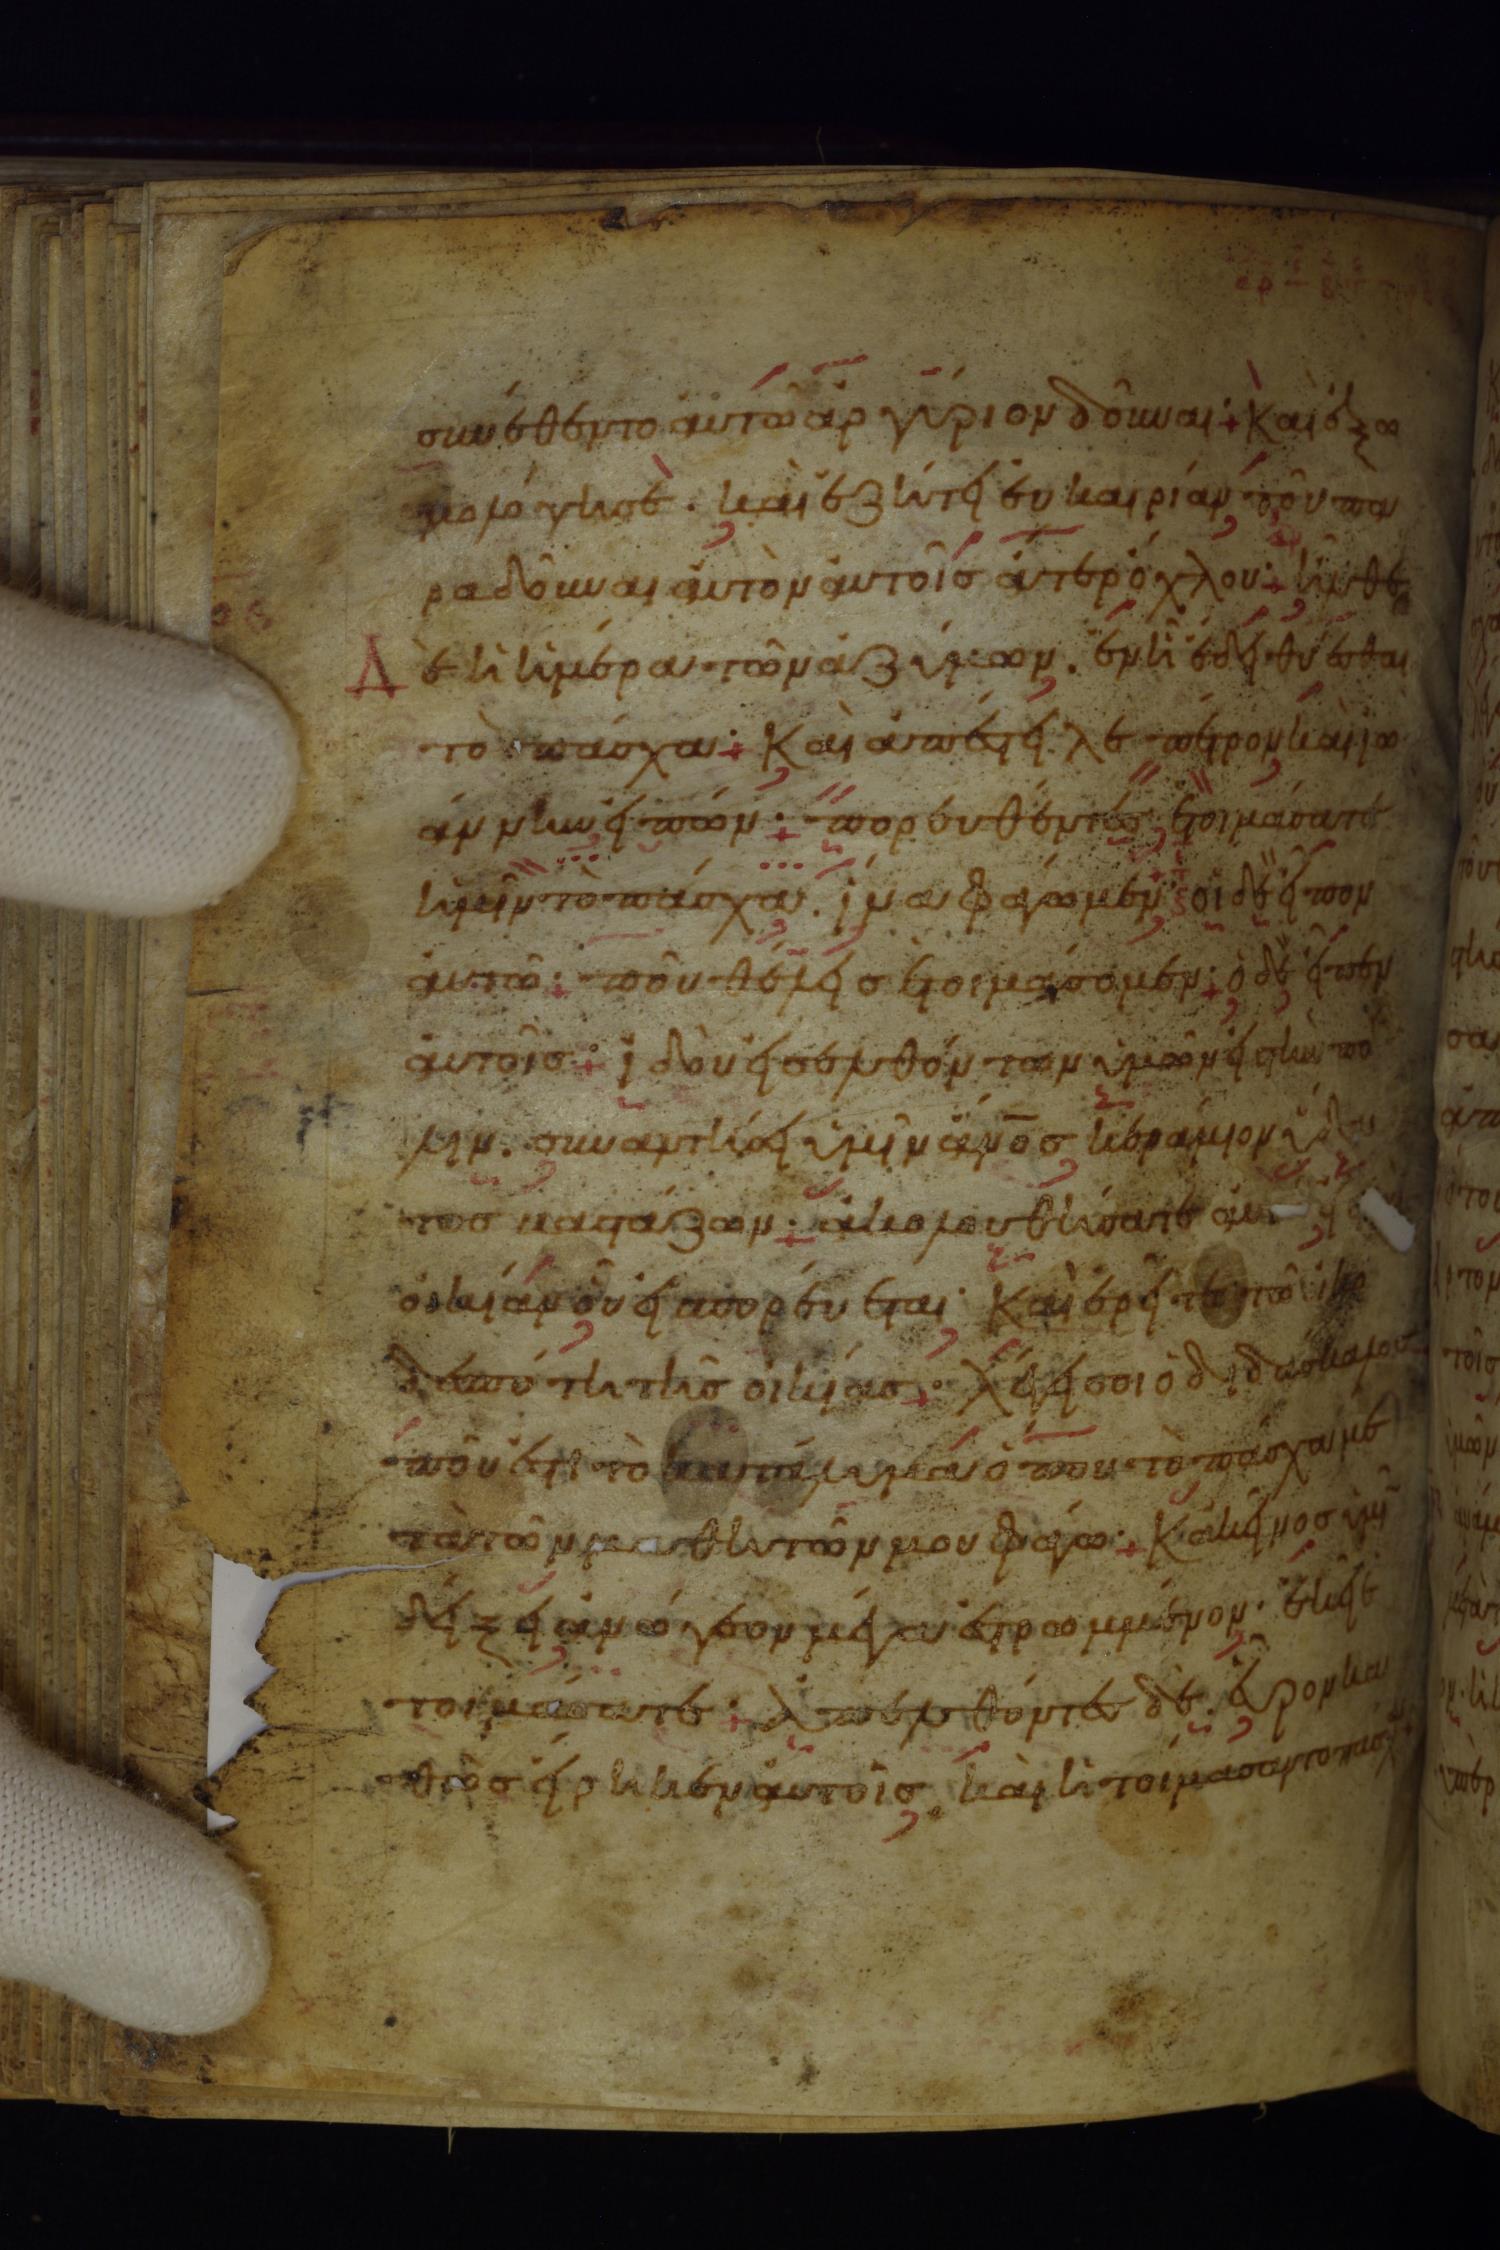 συνέθεντο αὐτῶ ἀργύριον δοῦναι· Καὶ ἐξω
μολόγησε. καὶ ἐζήτει εὐκαιρίαν τοῦ πα
ραδοῦναι αὐτὸν αὐτοῖς ἄτερ ὄχλου· ἦλθε
Δὲ ἡ ἡμέρα τῶν ἀζύμων. ἐν ἧ ἔδει θύεσθαι
τὸ πάσχα· Καὶ ἀπέστειλε πέτρον καὶ ἰω
άννην εἰπών· πορευθέντες ἑτοιμάσατε
ἡμῖν τὸ πάσχα. ἵνα φάγωμεν· οἱ δὲ εἶπον
αὐτῶ· ποῦ θέλεις ἑτοιμάσομεν· ὁ δὲ εἶπεν
αὐτοῖς· ἰδοὺ εἰσελθόντων ὑμῶν εἰς τὴν πό
λιν. συναντήσει ὑμῖν ἄνος κεράμιον ὕδα
τος βαστάζων· ἀκολουθήσατε αὐτ
οἰκίαν οὗ εἰσπορεύεται· Καὶ ἐρεῖτε τῶ οἰκο
δεσπότη τῆς οἰκίας· λέγει σοι ὁ διδάσκαλος
ποῦ ἐστι τὸ κατάλυμα ὅπου τὸ πάσχα με
τὰ τῶν μαθητῶν μου φάγω· Κἀκεῖνος ὑμῖν
δείξει ἀνώγεον μέγα ἐστρωμμένον. ἐκεῖ ἑ
τοιμάσατε· ἀπελθόντες δὲ. εὗρον κα
θὼς εἴρηκεν αὐτοῖς. καὶ ἡτοίμασαν τὸ πάσχα